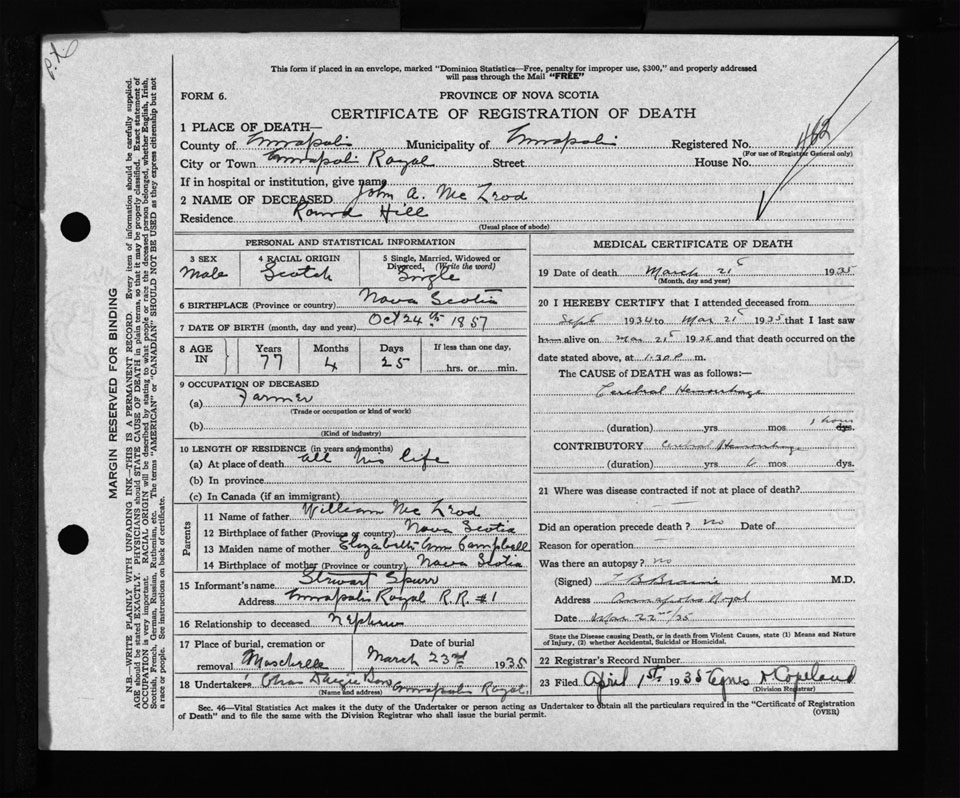 P.X.
This form if placed in an envelope, marked "Dominion Statistics—Free, penalty for improper use, $300," and properly addressed
will pass through the Mail "FREE"
FORM 6.
PROVINCE OF NOVA SCOTIA
CERTIFICATE OF REGISTRATION OF DEATH
462
1 PLACE OF DEATH—
County of Annapolis Municipality of Annapolis Registered No.
(For use of Registrar General only)
City or Town Annapolis Royal Street House No.
If in hospital or institution, give name
2 NAME OF DECEASED John A. McLeod
Residence Round Hill
(Usual place of abode)
PERSONAL AND STATISTICAL INFORMATION
3 SEX Male
4 RACIAL ORIGIN Scotch
5 Single, Married, Widowed or Divorced, (Write the word) Single
6 BIRTHPLACE (Province or country) Nova Scotia
7 DATE OF BIRTH (month, day and year) Oct 24th 1857
8 AGE IN Years 77 Months 4 Days 25 If less than one day, hrs. or min.
9 OCCUPATION OF DECEASED
(a) Farmer
(Trade or occupation or kind of work)
(b)
(Kind of industry)
10 LENGTH OF RESIDENCE (in years and months)
(a) At place of death all his life
(b) In province
(c) In Canada (if an immigrant)
Parents
11 Name of father William McLeod
12 Birthplace of father (Province or country) Nova Scotia
13 Maiden name of mother Elizabeth Ann Campbell
14 Birthplace of mother (Province or country) Nova Scotia
15 Informant's name Stewart Spurr
Address Annapolis Royal R.R. #1
16 Relationship to deceased Nephew
17 Place of burial, cremation or removal Moschelle
Date of burial March 23rd 1935
18 Undertakers Chas Bros Annapolis Royal
(Name and address)
MEDICAL CERTIFICATE OF DEATH
19 Date of death March 21st 1935
(Month, day and year)
20 I HEREBY CERTIFY that I attended deceased from
Sept 1934 to Mar 21st 1935 that I last saw
him alive on Mar 21st 1935 and that death occurred on the
date stated above, at 1.30 P m.
The CAUSE of DEATH was as follows:—
Cerebral Hemorrhage
(duration) yrs mos 1 hour dys.
CONTRIBUTORY Cerebral Hemorrhage
(duration) yrs 6 mos dys.
21 Where was disease contracted if not at place of death?
Did an operation precede death? no Date of
Reason for operation —
Was there an autopsy? no
(Signed) M.D.
Address Annapolis Royal
Date Mar 22nd/35
State the Disease causing Death, or in death from Violent Causes, state (1) Means and Nature
of Injury, (2) whether Accidental, Suicidal or Homicidal.
22 Registrar's Record Number
23 Filed April 1st 1935 Agnes M Copeland
(Division Registrar)
Sec. 46—Vital Statistics Act makes it the duty of the Undertaker or person acting as Undertaker to obtain all the particulars required in the "Certificate of Registration
of Death" and to file the same with the Division Registrar who shall issue the burial permit.
(OVER)
MARGIN RESERVED FOR BINDING
N.B.—WRITE PLAINLY WITH UNFADING INK—THIS IS A PERMANENT RECORD. Every item of information should be carefully supplied.
AGE should be stated EXACTLY. PHYSICIANS should STATE CAUSE OF DEATH in plain terms, so that it may be properly classified. Exact statement of
OCCUPATION is very important. RACIAL ORIGIN will be described by stating to what people or race the deceased person belonged, whether English, Irish,
Scottish, French, German, Russian, Ruthenian, etc. The terms "AMERICAN" or "CANADIAN" SHOULD NOT BE USED as they express citizenship but not
a race or people. See instructions on back of certificate.